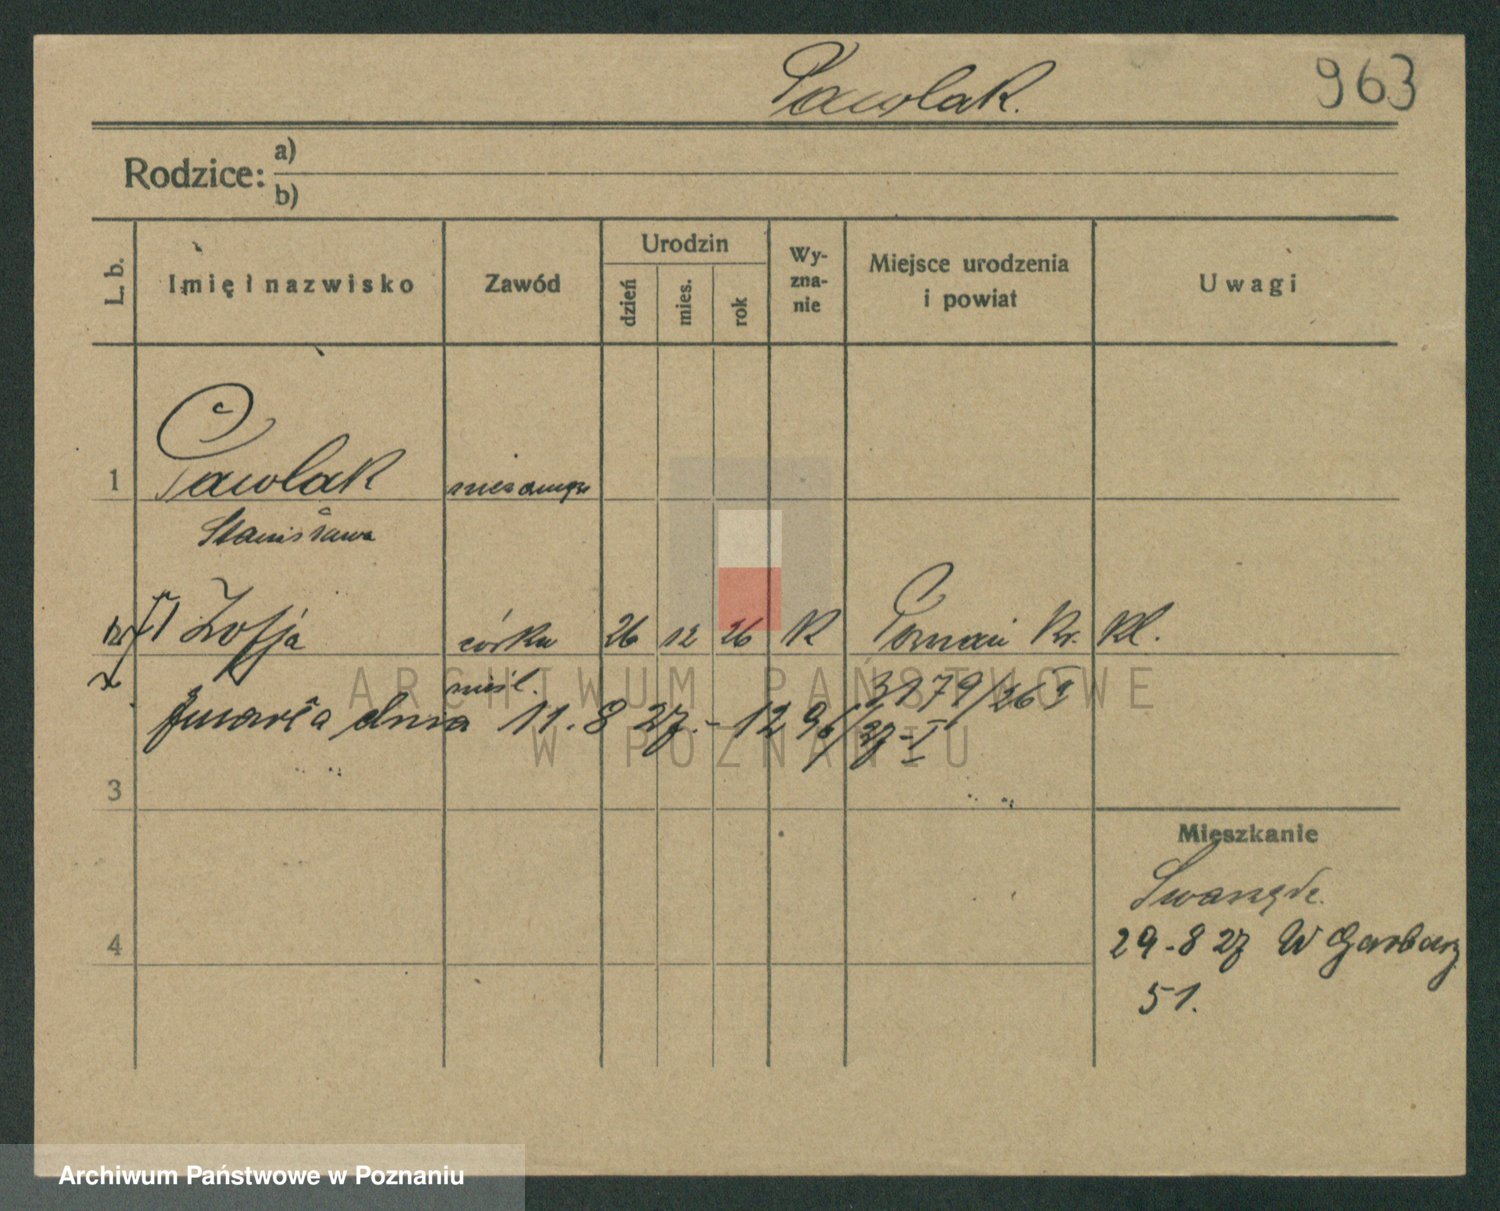 Pawlak.
963
Rodzice: a)
b)
L. b.
Imię i nazwisko
Zawód
Urodzin
dzień
mies.
rok
Wy-
zna-
nie
Miejsce urodzenia
i powiat
Uwagi
1 Pawlak
Stanisława
Zofja córka 26 12 26 K Poznań Kr. Kl.
nieśl. 3179/26 I
Zmarła dnia 11.8 27.- 1296/27-I
3
Mieszkanie
29.-8 27 W Garbary
4
51.
ARCHIWUM PAŃSTWOWE
W POZNANIU
Archiwum Państwowe w Poznaniu